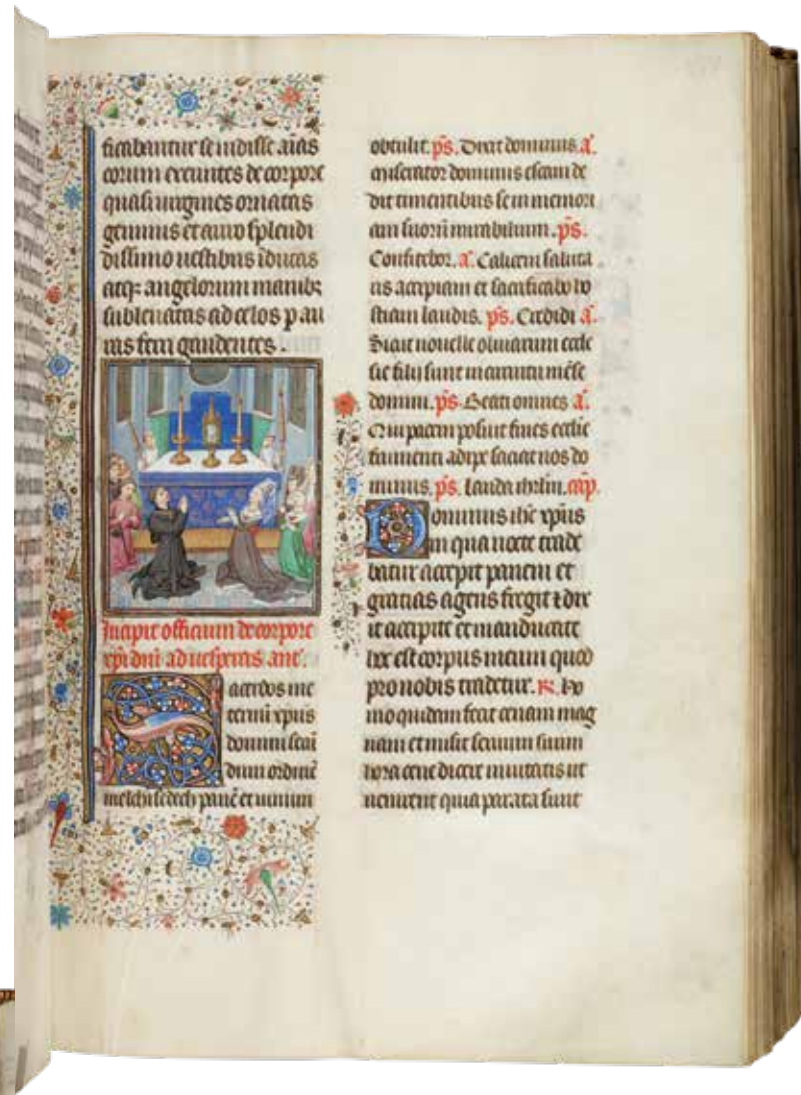 ficabantur se uidisse aias
eorum exeuntes de corpore
quasi uirgines ornatas
gemmis et auro splendi
dissimo uestibus idutas
atqꝫ angelorum manibꝫ
subleuatas ad celos p au
ras ferri gaudentes.
Incipit officium de corpore
xp̄i dn̄i ad uesperas ant̄.
Sacerdos in e
ternū xp̄us
dominus scd̄
dum ordinē
melchisedech panē et uinum
obtulit. p̄s. Dixit dominus. a̅.
Miserator dominus escam de
dit timentibus se in memori
am suorū mirabilium. p̄s.
Confitebor. a̅. Calicem saluta
ris accipiam et sacrificabo ho
stiam laudis. p̄s. Credidi a̅.
Sicut nouelle oliuarum eccle
sie filij sunt in circuitu mēse
domini. p̄s. Beati omnes a̅.
Qui pacem posuit fines ecclie
frumenti adipe saciat nos do
minus. p̄s. Lauda ihrlm. cap̄.
Dominus ihc xp̄us
in qua nocte trade
batur accepit panem et
gratias agens fregit ⁊ dix
it accipite et manducate
hoc est corpus meum quod
pro uobis tradetur. R̄. Ho
mo quidam fecit cenam mag
nam et misit seruum suum
hora cene dicere inuitatis ut
uenirent quia parata sunt